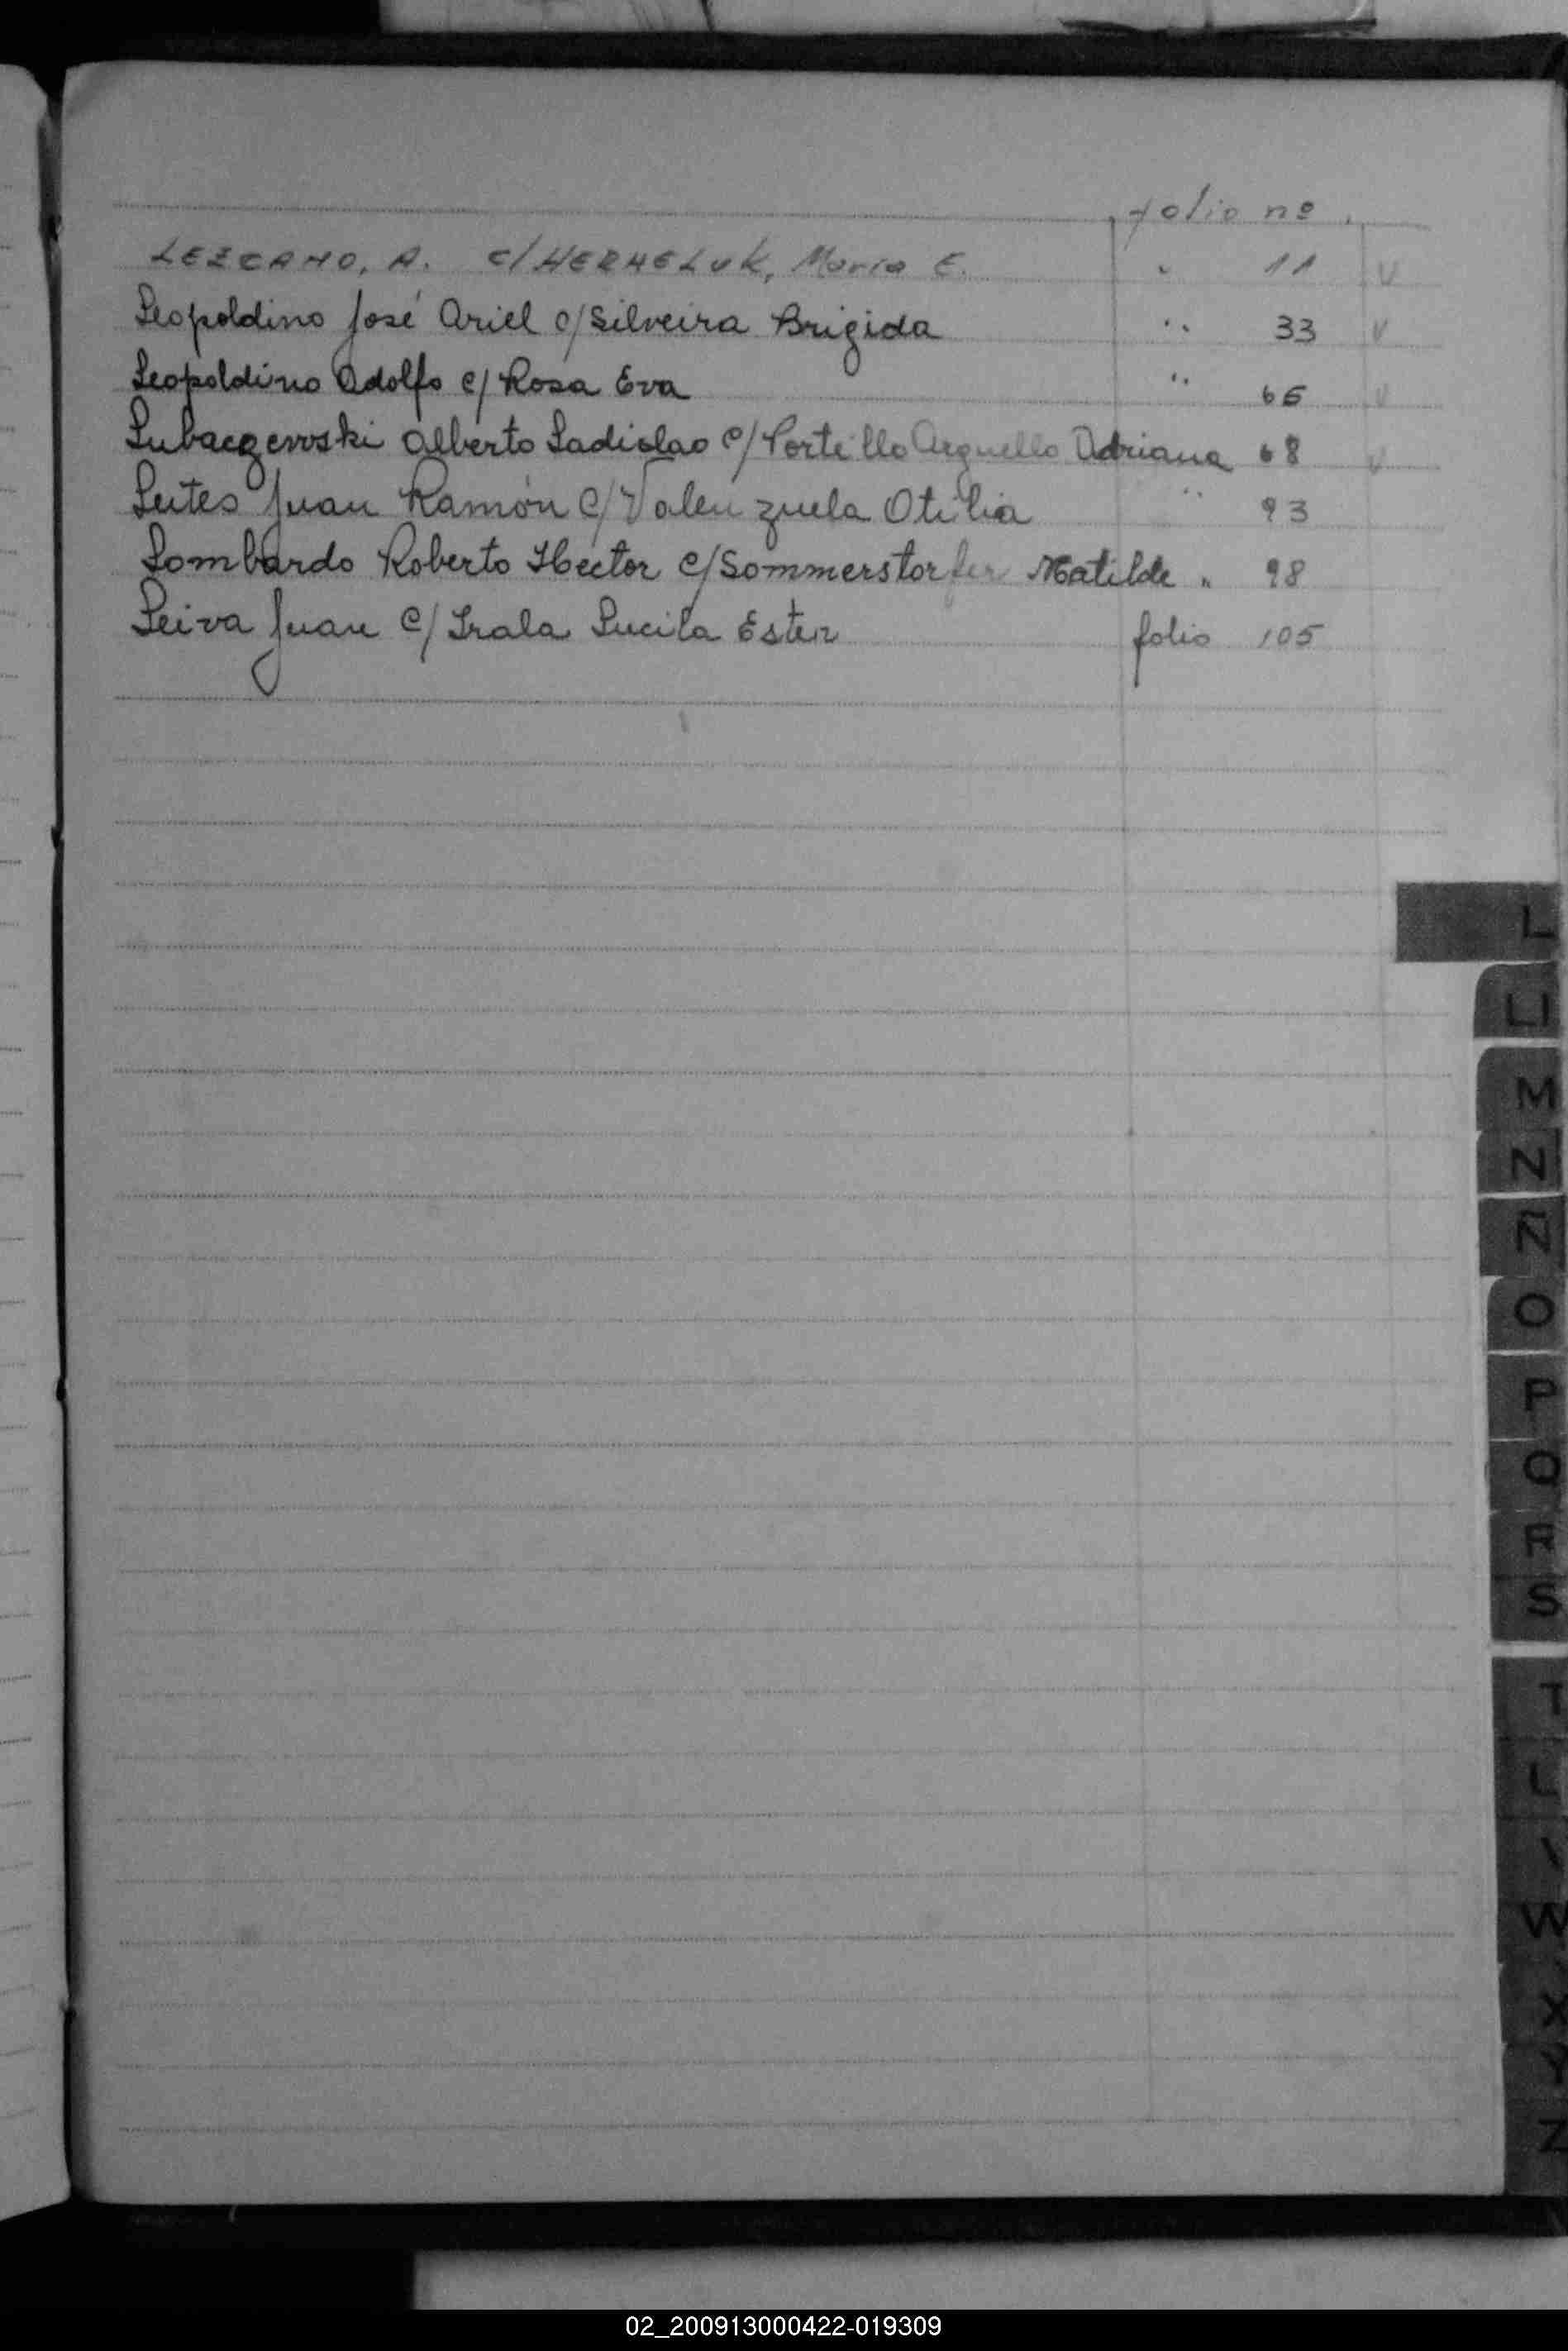 folio nº
LEZCANO, A. c/ HERMELUK, Maria E. " 11 V
Leopoldino José Ariel c/ Silveira Brigida " 33 V
Leopoldino Adolfo c/ Rosa Eva " 66 V
Lubaczewski Alberto Ladislao c/ Portillo Arguello Adriana 68 V
Leites Juan Ramón c/ Valenzuela Otilia " 93
Lombardo Roberto Hector c/ Sommerstorfer Matilde " 98
Leiva Juan c/ Irala Lucila Ester folio 105
L
LL
M
N
Ñ
O
P
Q
R
S
T
W
X
Y
Z
02_200913000422-019309